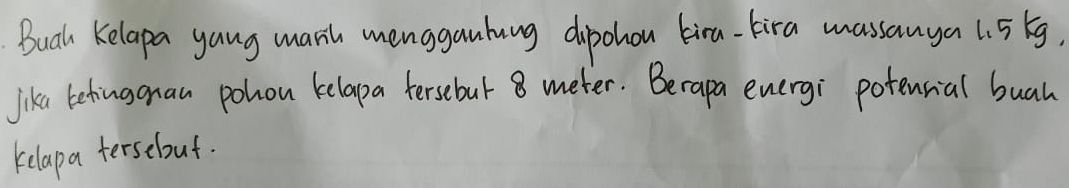 Buah Kelapa yang masih menggantung dipohon kira-kira massanya 1.5 kg.
Jika ketinggian pohon kelapa tersebut 8 meter. Berapa energi potensial buah
kelapa tersebut.